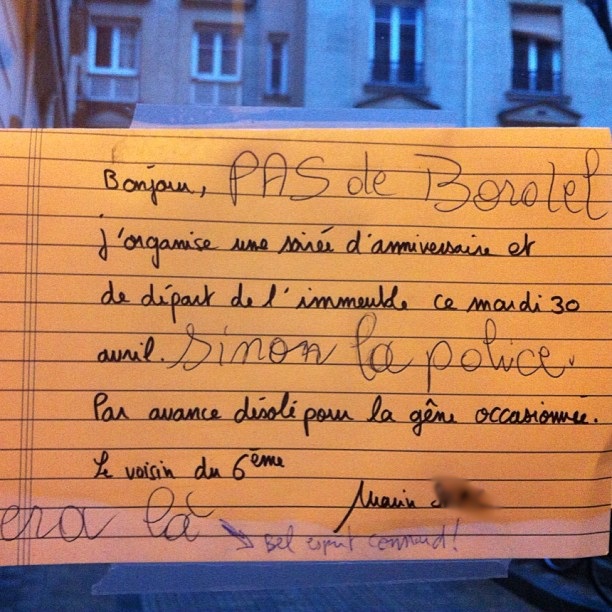 Bonjour, PAS de Borolel
j'organise une soirée d'anniversaire et
de départ de l'immeuble ce mardi 30
avril. Sinon la police
Par avance désolé pour la gêne occasionnée.
Le voisin du 6ème
Marin
era là
Bel esprit connard!